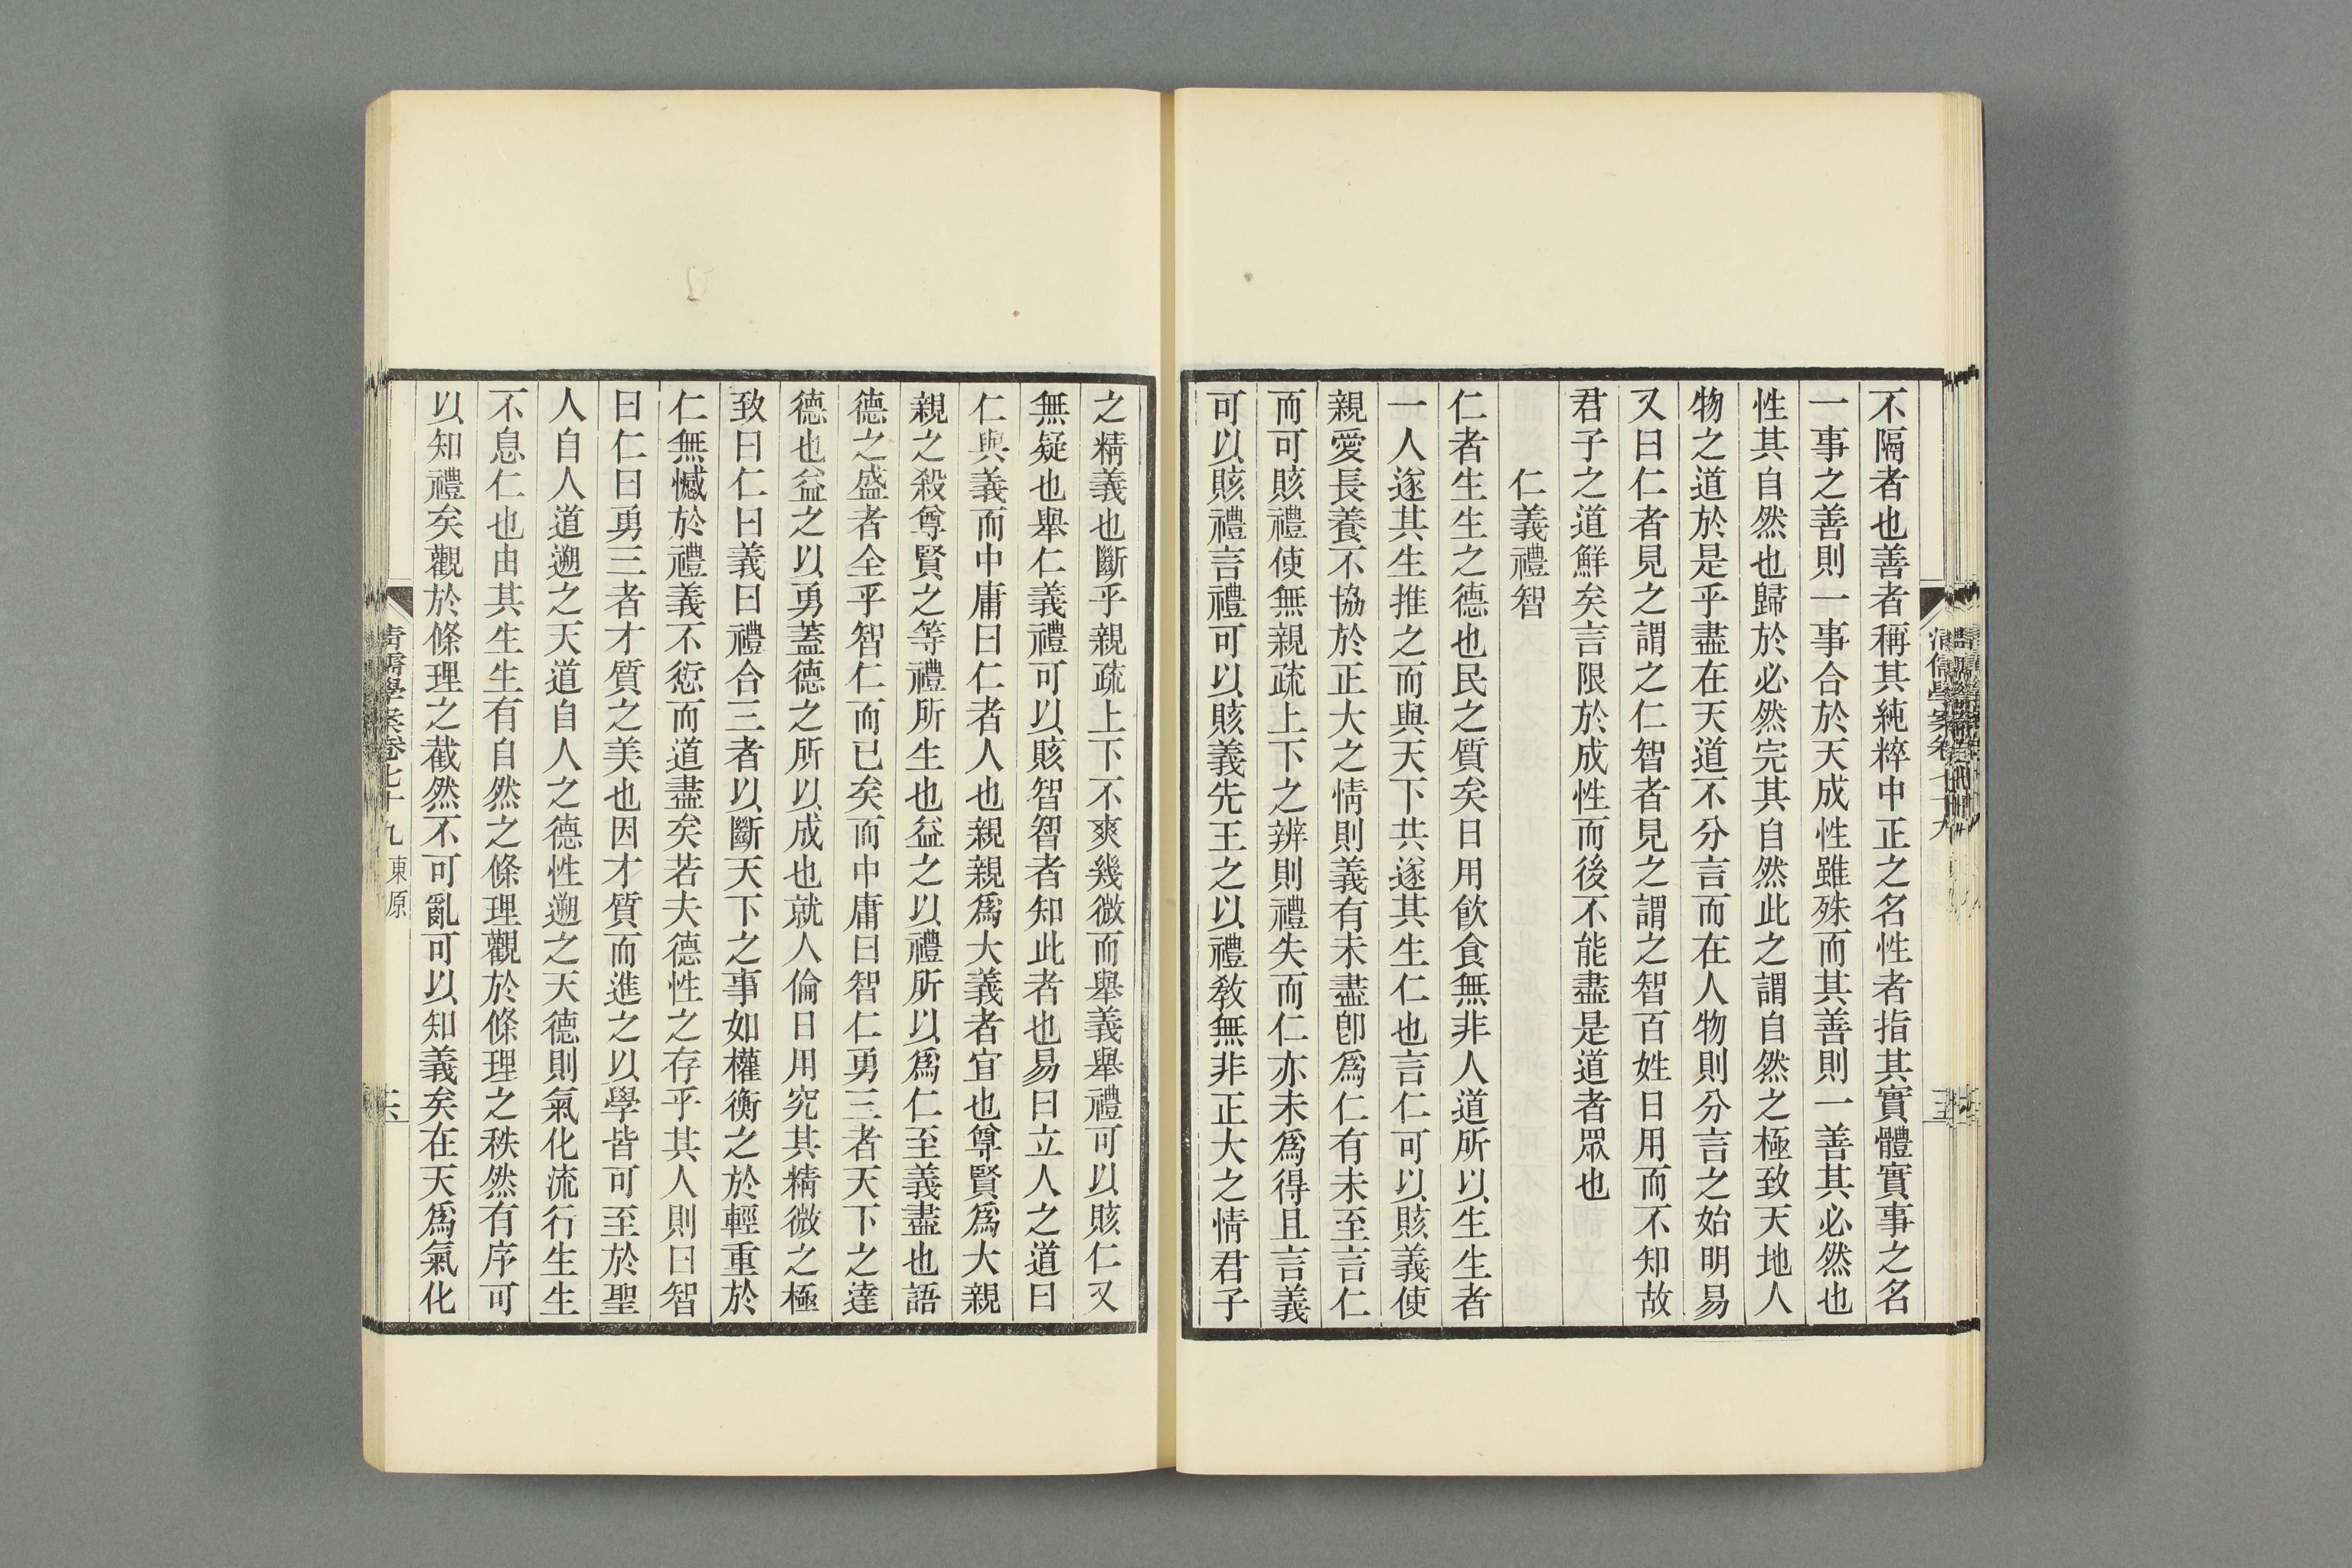 不隔者也善者稱其純粹中正之名性者指其實體實事之名
一事之善則一事合於天成性雖殊而其善則一善其必然也
性其自然也歸於必然完其自然此之謂自然之極致天地人
物之道於是乎盡在天道不分言而在人物則分言之始明易
又曰仁者見之謂之仁智者見之謂之智百姓日用而不知故
君子之道鮮矣言限於成性而後不能盡是道者眾也
仁義禮智
仁者生生之德也民之質矣日用飲食無非人道所以生生者
一人遂其生推之而與天下共遂其生仁也言仁可以賅義使
親愛長養不協於正大之情則義有未盡卽爲仁有未至言仁
而可賅禮使無親疏上下之辨則禮失而仁亦未爲得且言義
可以賅禮言禮可以賅義先王之以禮敎無非正大之情君子
之精義也斷乎親疏上下不爽幾微而舉義舉禮可以賅仁又
無疑也舉仁義禮可以賅智智者知此者也易曰立人之道曰
仁與義而中庸曰仁者人也親親爲大義者宜也尊賢爲大親
親之殺尊賢之等禮所生也益之以禮所以爲仁至義盡也語
德之盛者全乎智仁而已矣而中庸曰智仁勇三者天下之達
德也益之以勇蓋德之所以成也就人倫日用究其精微之極
致曰仁曰義曰禮合三者以斷天下之事如權衡之於輕重於
仁無憾於禮義不愆而道盡矣若夫德性之存乎其人則曰智
曰仁曰勇三者才質之美也因才質而進之以學皆可至於聖
人自人道遡之天道自人之德性遡之天德則氣化流行生生
不息仁也由其生生有自然之條理觀於條理之秩然有序可
以知禮矣觀於條理之截然不可亂可以知義矣在天爲氣化
清儒學案卷七十九 東原